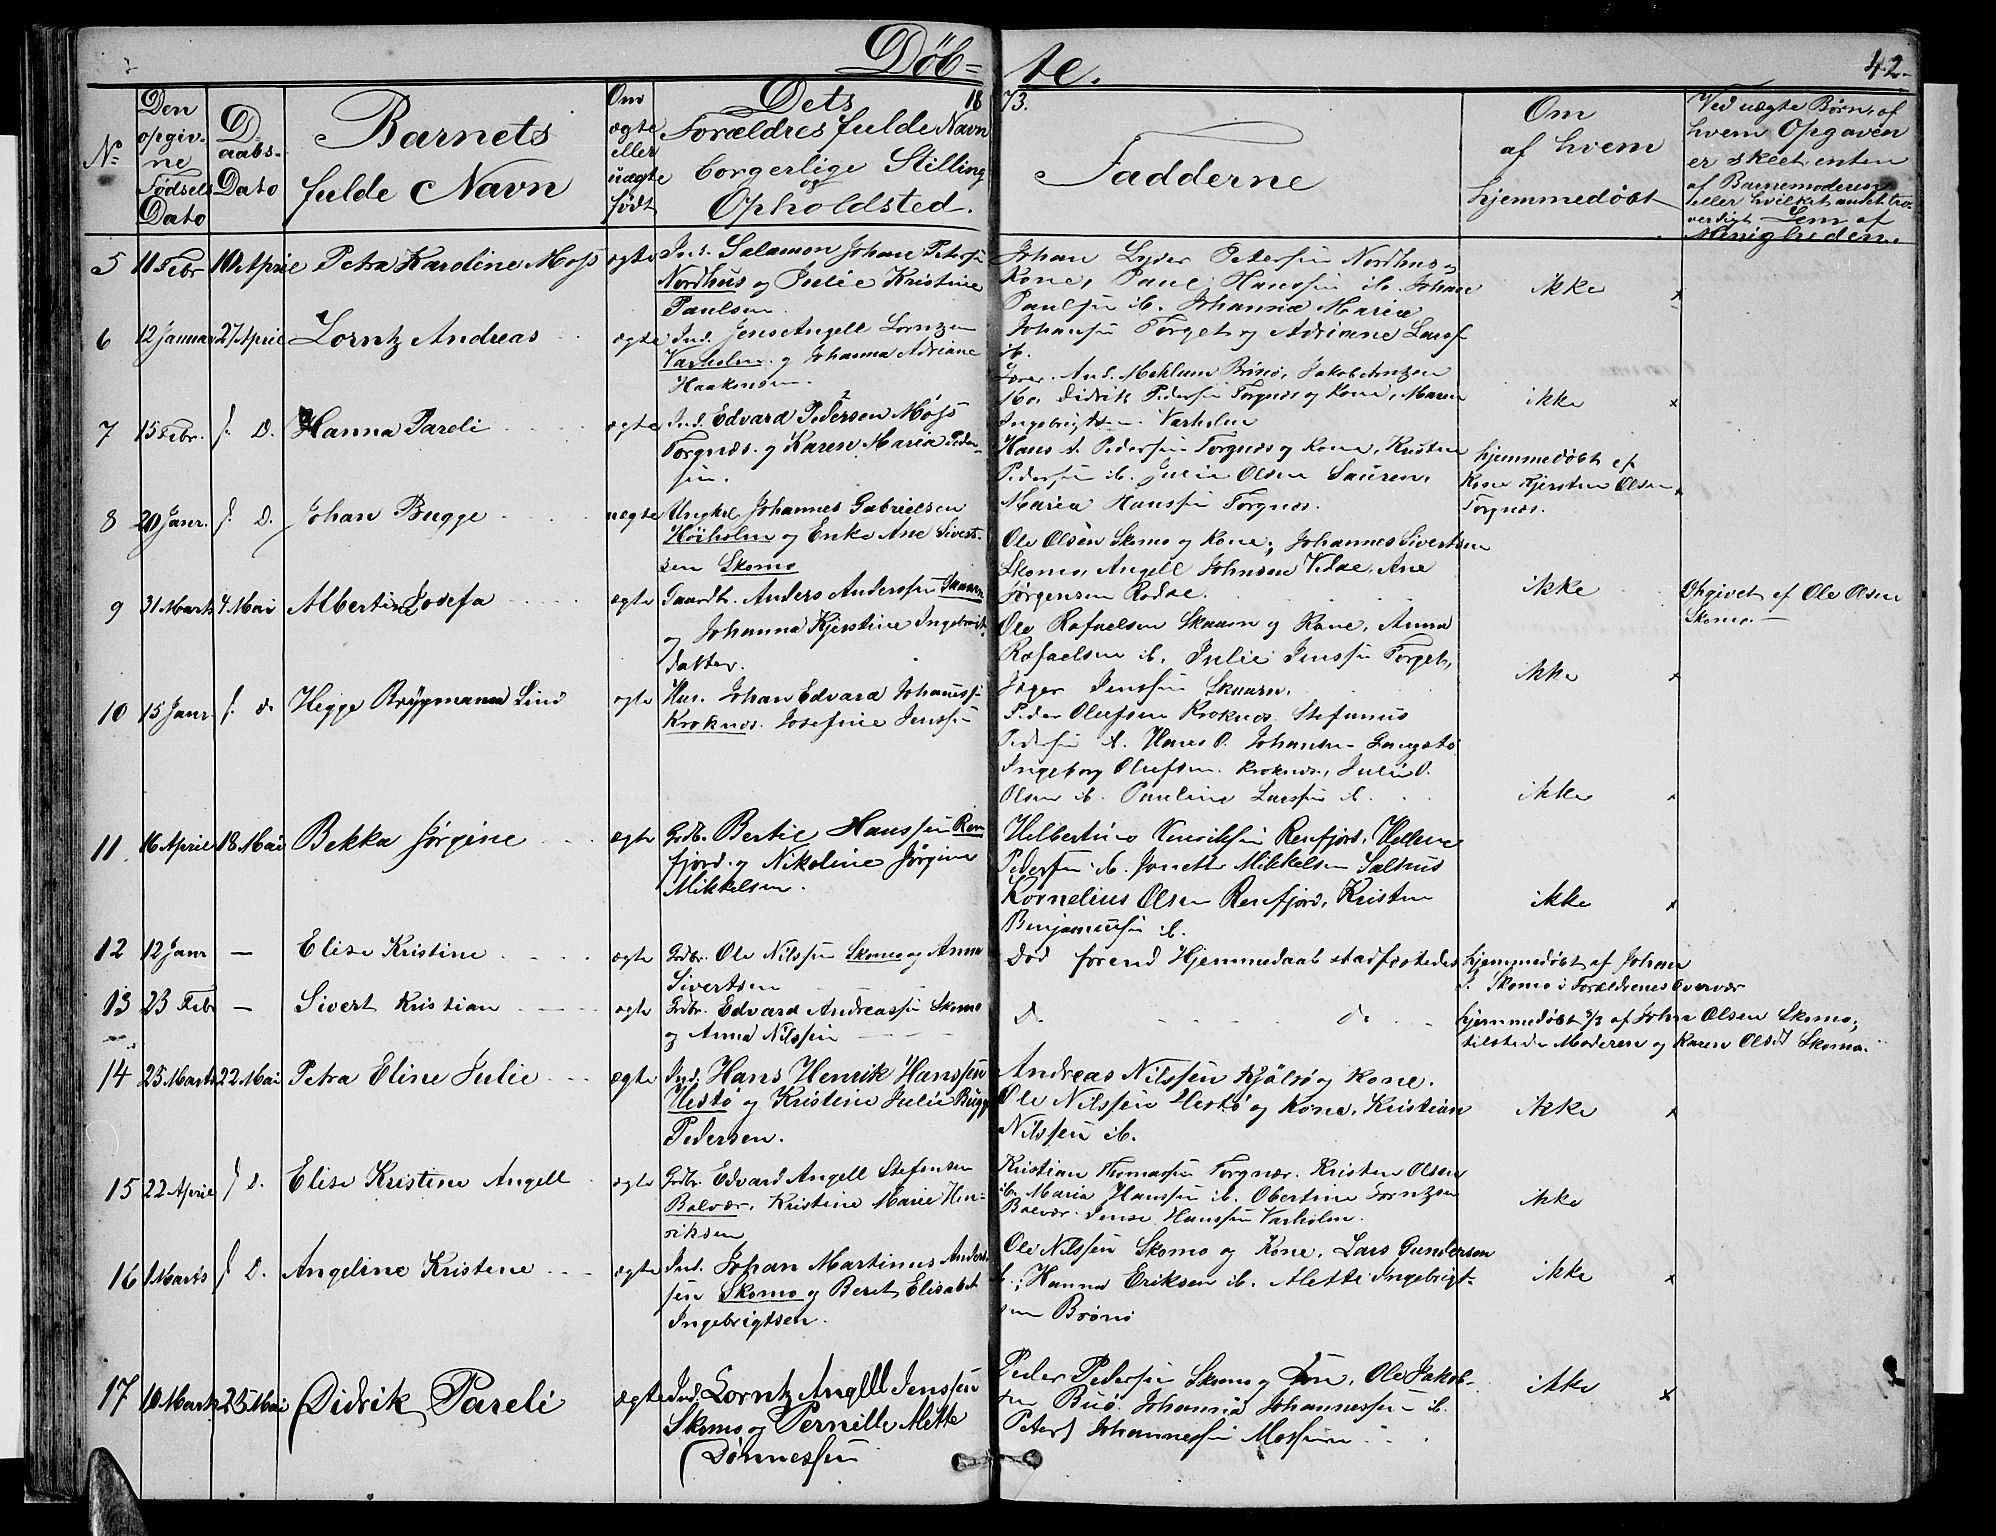 Døb-
te.
42.
18
73.
No
Den opgivne Fødsels Dato
Daabs-Dato
Barnets fulde Navn
Om ægte eller uægte født
Dets Forældres fulde Navn borgerlige Stilling og Opholdsted.
Fadderne
Om af hvem hjemmedøbt
Ved uægte Børn, af hvem Opgaven er skeet enten af Barnemoderen eller hvilket andet troverdigt Lem af Menigheden.
5 11 Febr 10 Aprie Petra Karoline Moss ægte
Ind. Salamon Johan Petersen
Nordhus og Julie Kristine
Paulsen.
Johan Lyder Pedersen Nordhus og
Kone, Paul Hanssen ib. Johan
Paulsen ib. Johanna Maria
Johansen Torget og Adriane Larss
ib.
ikke
6 12 Januar 27 Aprie Lorntz Andreas ægte
Ind. Jens Angell Lorntzen
Varholm og Johanna Adriane
Haakensen.
And. Mehlum Brønø, Jakob Arntzen
ibo, Didrik Pedersen Torgnes og Kone, Maren
Ingebrigtsen Varholm
ikke
7 15 Febr. s. D. Hanna Pareli ægte
Ind. Edvard Pedersen Moss
Torgnæs. og Karen Maria Peder-
sen.
Hans A. Pedersen Torgnæs og Kone, Kristen
Pedersen ib. Julie Olsen Sauren,
Maria Hanssen Torgnes.
hjemmedøbt af
Kone Kjersten Olsen
Torgnæs.
8 20 Janr. s. D. Johan Bugge uægte
Ungkl. Johannes Gabrielsen
Høiholm og Enke Ane Siverts-
sen Skomo
Ole Olsen Skomo og Kone, Johannes Sivertsen
Skomo, Angell Johnsen Vedøe, Ane
Jørgensen Rodøe.
ikke
Opgivet af Ole Olsen
Skomo.
9 31 Marts 4 Mai Albertine Josefa ægte
Gaardb. Anders Anderssen Skaarn
og Johanna Kjerstine Ingebrigt-
datter.
Ole Rafaelsen Skaarn og Kone, Anna
Rafaelsen ib. Julie Jenssen Torget,
Jøger Jenssen Skaarn.
ikke
10 15 Janr s. D. Hegge Brygmann Lind ægte
Hus. Johan Edvard Johanssen
Kroknes. Josefine Jenssen
Peder Olufsen Kroknes. Stefanus
Pedersen ib. Hans O. Johansen Langstø
Ingeborg Olufsen Kroknes, Julie O.
Olsen ib. Pauline Larssen ib.
ikke
11 16 Aprie 18 Mai Bekka Jørgine ægte
Grdb. Bertie Hanssen Ren
fjord og Nikoline Jørgine
Mikkelsen.
Helbertine Henriksen Renfjord, Hellene
Pedersen ib. Jonette Mikkelsen Salhus
Kornelius Olsen Renfjord, Kristen
Benjaminsen ib.
ikke
12 12 Janr — Elise Kristine ægte
Grdbr. Ole Nilssen Skomo og Anna
Sivertsen
Død forend Hjemmedaab stadfæstedes
hjemmedøbt af Johan
P. Skomo i Forældrenes Overvær
13 23 Febr — Sivert Kristian ægte
Grdbr. Edvard Andreassen Skomo
og Anna Nilssen
D. do
hjemmedøbt 3/3 af John Olsen Skomo,
tilstede Moderen og Karen Olsd Skomo.
14 23 Marts 22 Mai Petra Eline Julie ægte
Ind. Hans Henrik Hanssen
Hestø og Kristine Julie Bugge
Pedersen.
Andreas Nilssen Kjølsø og Kone.
Ole Nilssen Hestø og Kone, Kristian
Nilssen ib.
ikke
15 22 Aprie s D. Elise Kristine Angell ægte
Grdbr. Edvard Angell Stefensen
Bolvær, Kristine Marie Hen-
riksen
Kristian Thomassen Torgnær. Kristen Olsen
ib. Maria Hanssen ib. Obertine Lorntzen
Bolvær. Hanssen Varholm.
ikke
16 1 Marts s D. Angeline Kristene ægte
Ind. Johan Martinus Anders-
sen Skomo og Beret Elisabet
Ingebrigtsen.
Ole Nilssen Skomo og Kone, Lars Gundersen
ib., Hanna Eriksen ib. Mette Ingebrigt-
sen Brønø
ikke
17 10 Marts 25 Mai Didrik Pareli ægte
Ind. Lorntz Angell Jenssen
Skomo og Pernille Mette
Johnessen
Peder Pedersen Skomo og Kone, Ole Jakob-
sen Buø. Johanna Johannessen ib.
Peters Johannessen Mossum
ikke